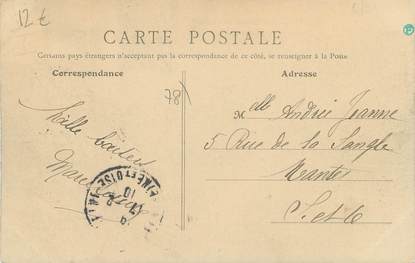 12 €
CARTE POSTALE
Certains pays étrangers n'acceptant pas la correspondance de ce côté, se renseigner à la Poste
Correspondance
Adresse
78
Mlle Andrée Jeanne
5 Rue de la Sangle
Mantes
S. et O
Mille baisers
SEINE ET OISE
P